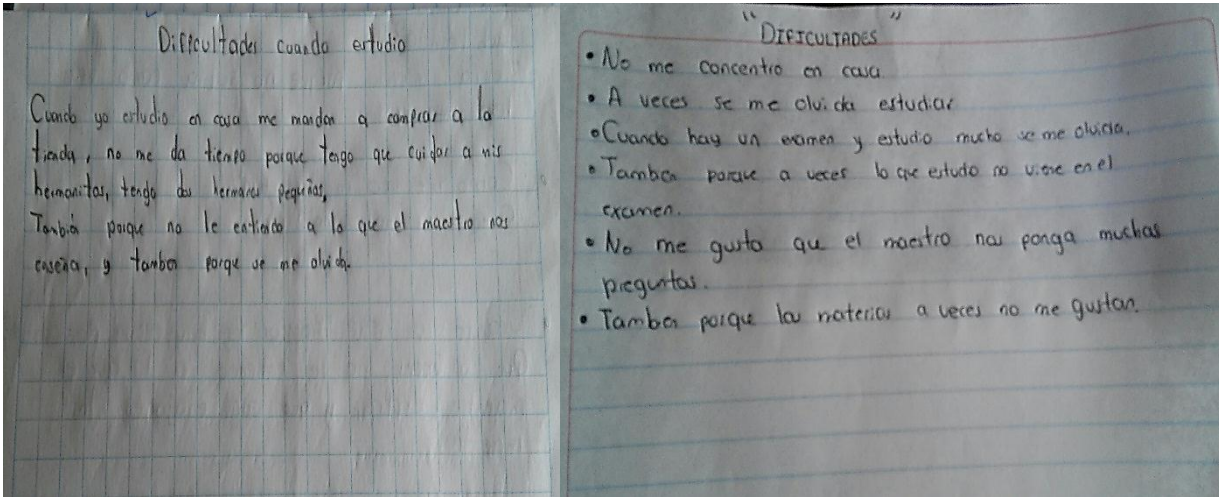 Dificultades cuando estudio
Cuando yo estudio en casa me mandan a comprar a la
tienda, no me da tiempo porque tengo que cuidar a mis
hermanitas, tengo dos hermanas pequeñas,
También porque no le entiendo a lo que el maestro nos
enseña, y tambien porque se me olvida.
"DIFICULTADES"
• No me concentro en casa
• A veces se me olvida estudiar
• Cuando hay un examen y estudio mucho se me olvida.
• Tambien porque a veces lo que estudo no viene en el
examen.
• No me gusta que el maestro nos ponga muchas
preguntas.
• Tambien porque las materias a veces no me gustan.